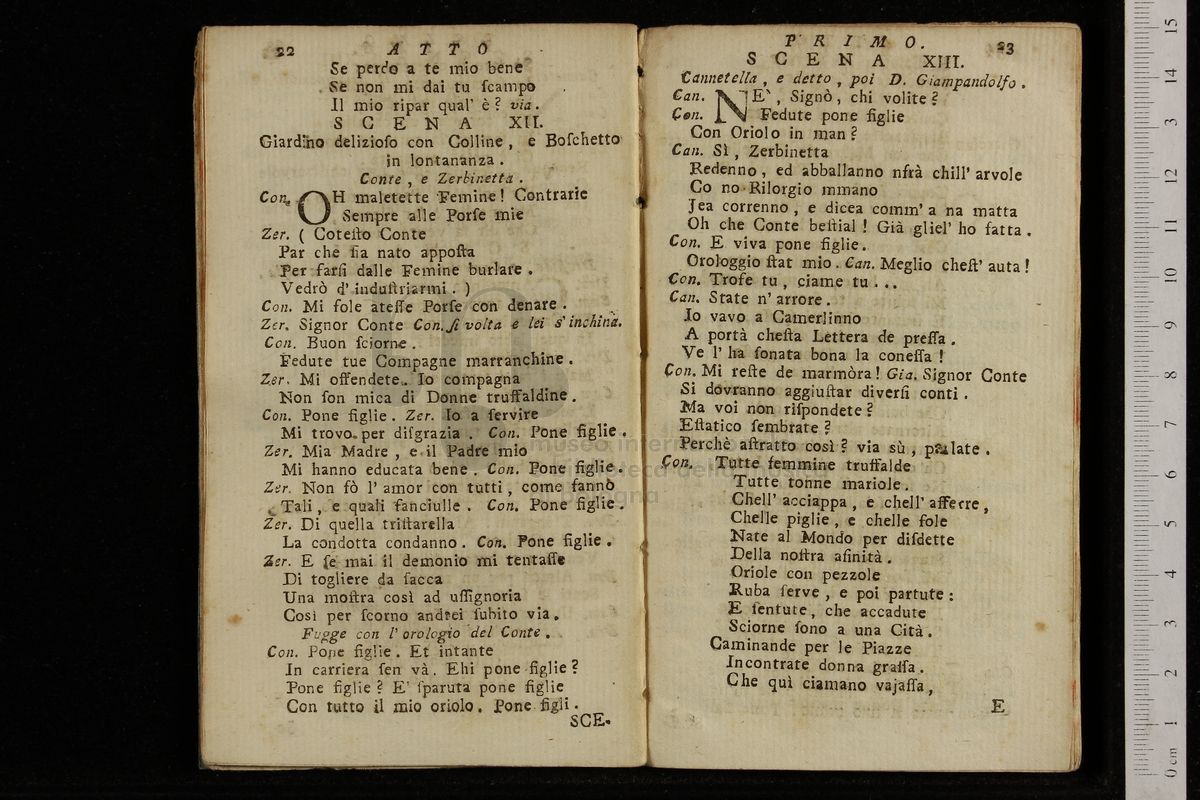 22 ATTO
Se perdo a te mio bene
Se non mi dai tu ſcampo
Il mio ripar qual' è? via.
SCENA XII.
Giardino delizioſo con Colline, e Boſchetto
in lontananza.
Conte, e Zerbinetta.
Con. OH maletette Femine! Contrarie
Sempre alle Porſe mie
Zer. ( Coteſto Conte
Par che ſia nato appoſta
Per farſi dalle Femine burlare.
Vedrò d' induſtriarmi. )
Con. Mi ſole ateſſe Porſe con denare.
Zer. Signor Conte Con. ſi volta e lei s' inchina.
Con. Buon ſciorne.
Fedute tue Compagne marranchine.
Zer. Mi offendete. Io compagna
Non ſon mica di Donne truffaldine.
Con. Pone figlie. Zer. Io a ſervire
Mi trovo per diſgrazia. Con. Pone figlie.
Zer. Mia Madre, e il Padre mio
Mi hanno educata bene. Con. Pone figlie.
Zer. Non fò l' amor con tutti, come fannò
Tali, e quali fanciulle. Con. Pone figlie.
Zer. Di quella triſtarella
La condotta condanno. Con. Pone figlie.
Zer. E ſe mai il demonio mi tentaſſe
Di togliere da ſacca
Una moſtra così ad uſſignoria
Così per ſcorno andrei ſubito via.
Fugge con l' orologio del Conte.
Con. Pone figlie. Et intante
In carriera ſen và. Ehi pone figlie?
Pone figlie? E' ſparuta pone figlie
Con tutto il mio oriolo. Pone figli.
SCE-
PRIMO. 23
SCENA XIII.
Cannetella, e detto, poi D. Giampandolfo.
Can. NE', Signò, chi volite?
Con. Fedute pone figlie
Con Oriolo in man?
Can. Sì, Zerbinetta
Redenno, ed abballanno nfrà chill' arvole
Co no Rilorgio mmano
Jea correnno, e dicea comm' a na matta
Oh che Conte beſtial! Già gliel' ho fatta.
Con. E viva pone figlie.
Orologgio ſtat mio. Can. Meglio cheſt' auta!
Con. Trofe tu, ciame tu...
Can. State n' arrore.
Io vavo a Camerlinno
A portà cheſta Lettera de preſſa.
Ve l' ha ſonata bona la coneſſa!
Con. Mi reſte de marmòra! Gia. Signor Conte
Si dovranno aggiuſtar diverſi conti.
Ma voi non riſpondete?
Eſtatico ſembrate?
Perchè aſtratto così? via sù, parlate.
Con. Tutte femmine truffalde
Tutte tonne mariole.
Chell' acciappa, e chell' afferre,
Chelle piglie, e chelle ſole
Nate al Mondo per diſdette
Della noſtra aſinità.
Oriole con pezzole
Ruba ſerve, e poi partute:
E ſentute, che accadute
Sciorne ſono a una Cità.
Caminande per le Piazze
Incontrate donna graſſa.
Che quì ciamano vajaſſa,
E